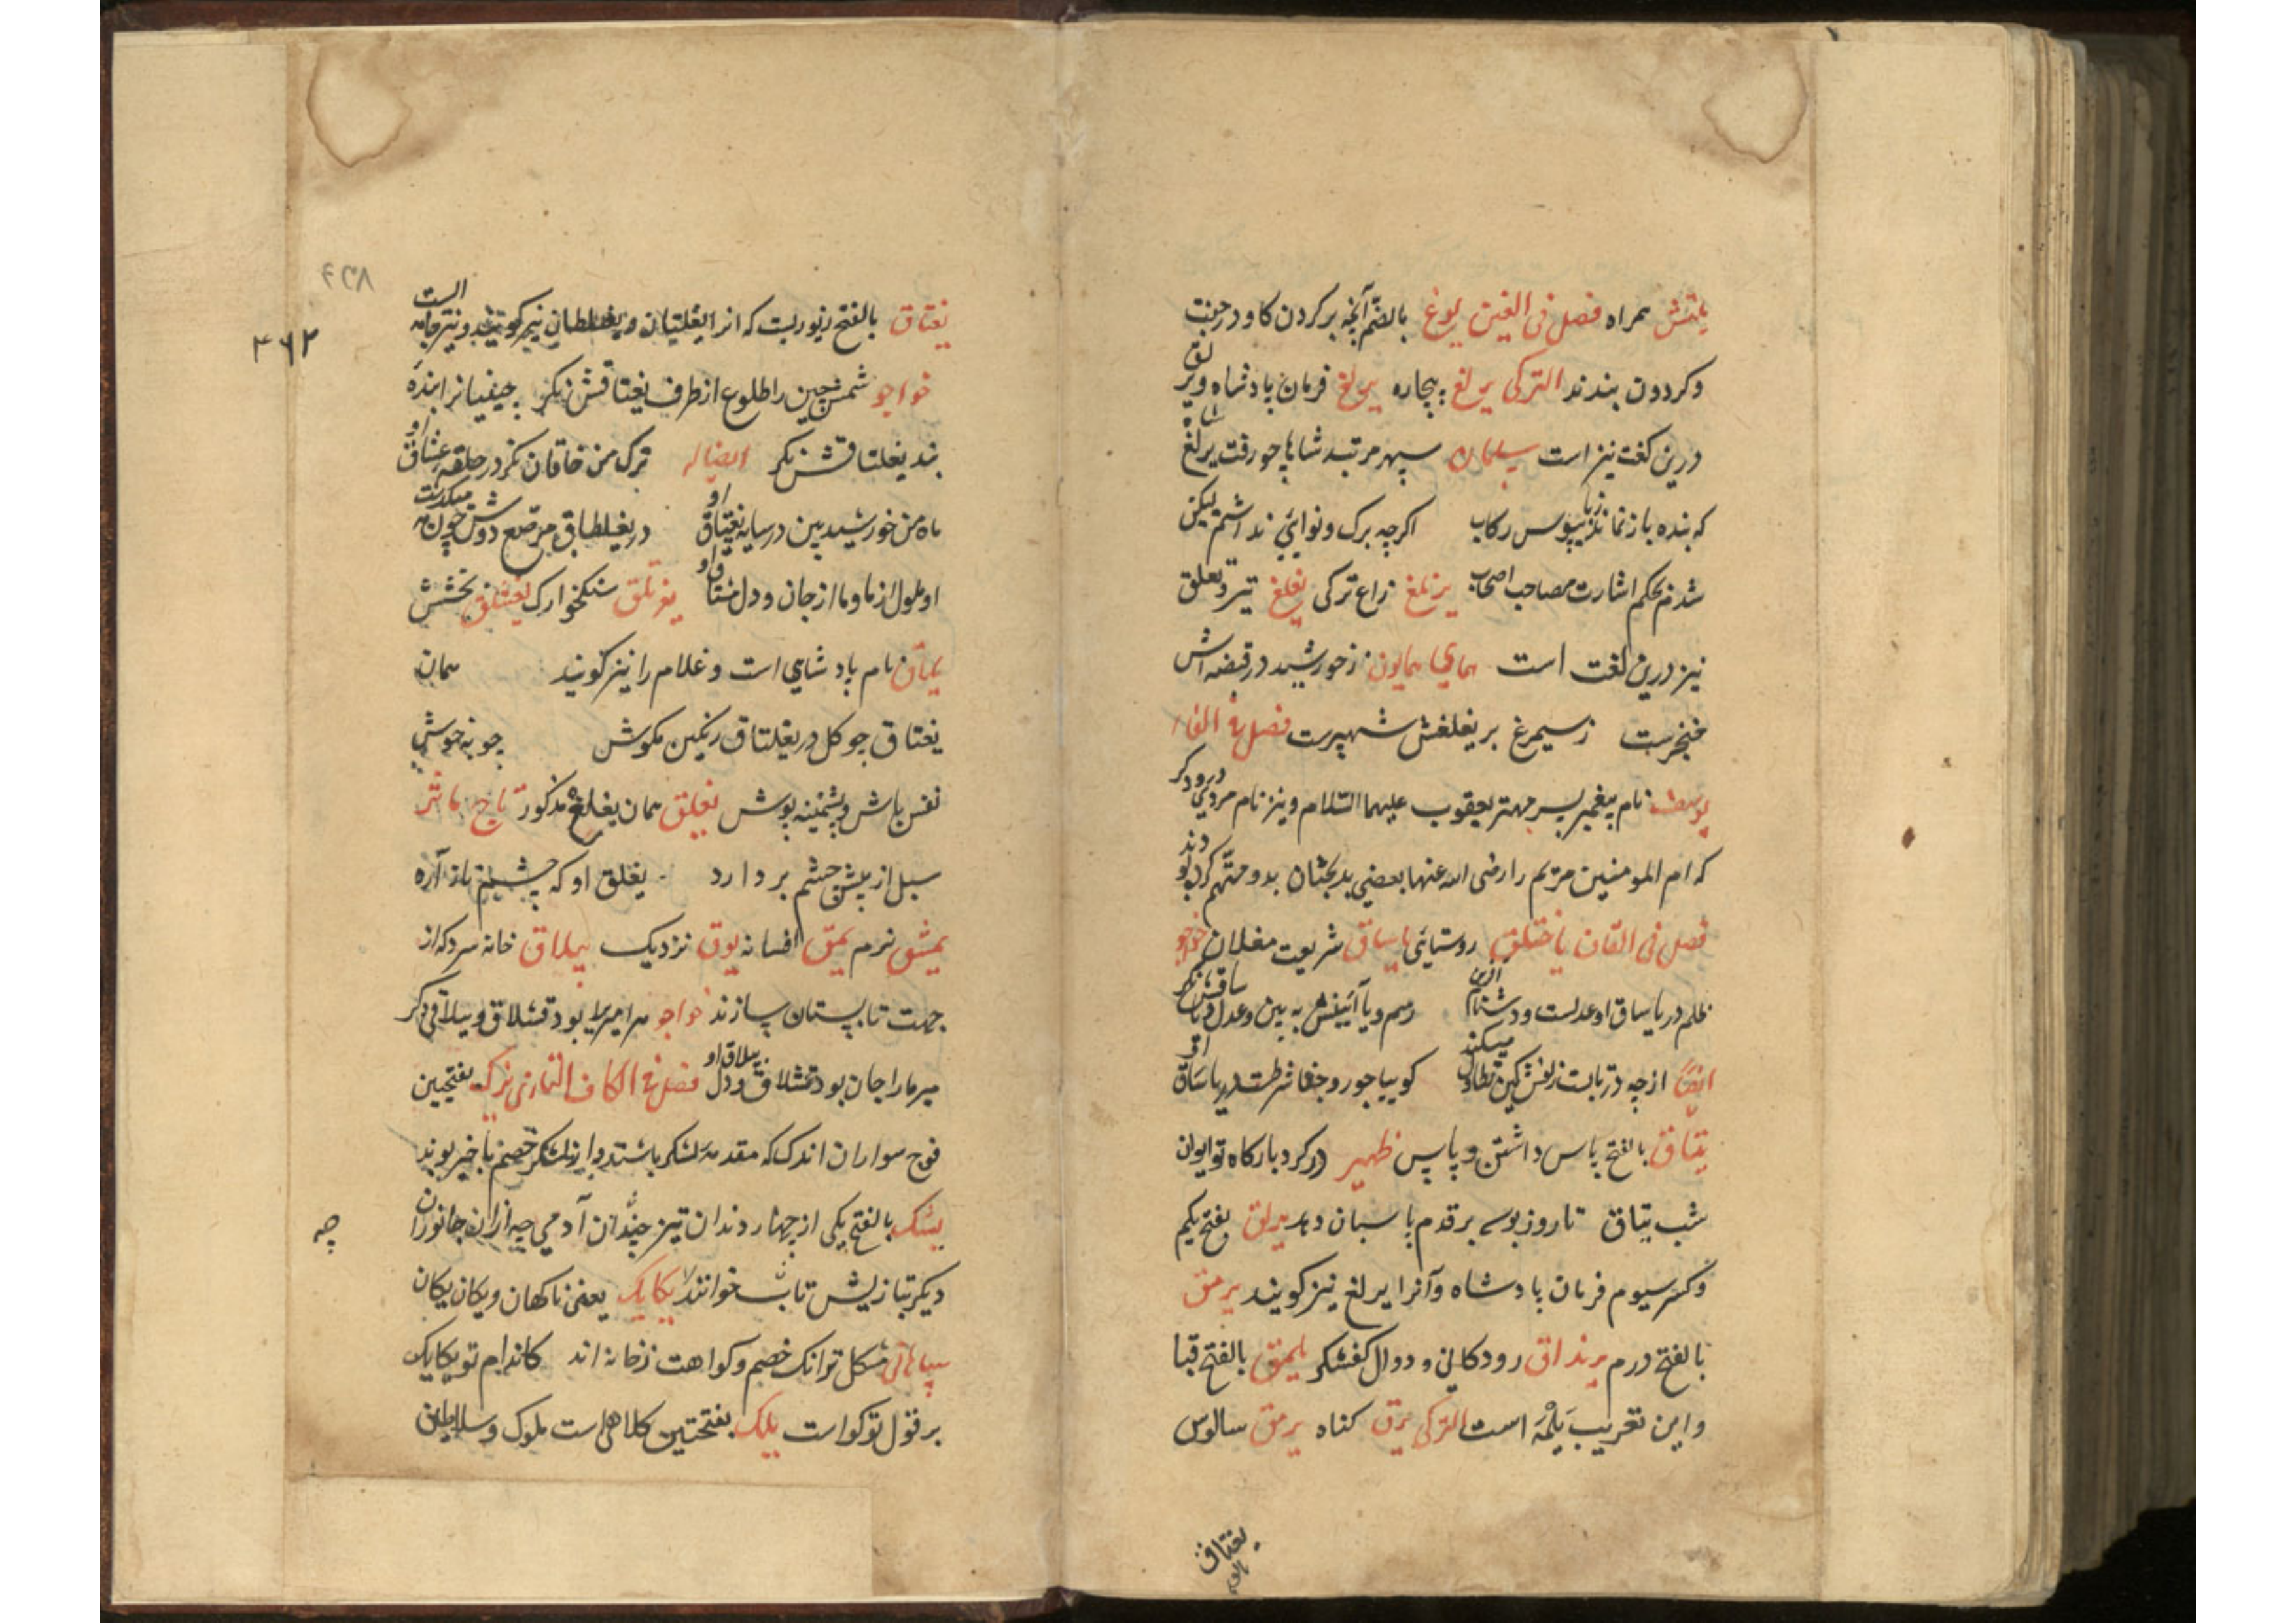 یلتش همراه فصل فی الغین یوغ بالضم آنچه بر کردن کاو در جفت
و کردون بندند الترکی یرلغ بیچاره یرلغ فرمان پادشاه و یر
لق
درین لغت نیز است سلمان سپهر مرتبه شاها چو رفت یرلغ
شاه
که بنده باز نماند زپیوس رکاب اکرچه برک و نوایی نداشتم لیکن
شدم بحکم اشارت مصاحب اصحاب یزنلغ زاغ ترکی یغلغ تیر و یغلق
نیز درین لغت است همای همایون ز خورشید در قبضه اش
خنجرست ز سیمرغ بر یغلغش شهپرست فصل فی الفاء
یوسف نام پیغمبر پسر مهتر یعقوب علیهما السلام و نیز نام مردی
درودکر
که ام المومنین مریم را رضی الله عنها بعضی بدبختان بدو متهم کرده بو
دند
فصل فی القاف یاختلق روستایی یاساق شریعت مغلان خواجو
ظلم در یاساق او عدلست و دشنام آفرین رسم و یا آئینش به بین و عدل و یا
ساقش نکر
ایضا از چه در تابست زلفش کین تطاول میکند کوییا جور و جفا شرطست در یاساق
او
یتاق بالفتح پاس داشتن و پاس ظهیر در کرد بارکاه تو ایوان
شب یتاق تا روز بوسه بر قدم پاسبان دهد یرلق بفتح یکم
و کسر سیوم فرمان پادشاه و آنرا یرلغ نیز کویند یرمق
بالفتح درم یرنداق رودکانی و دوال کفشکر یلمق بالفتح قبا
و این تعریب یلمه است الترکی یزق کناه یرمق سالوس
یغتاق
بالفتح
۴۳۸
۳۶۲
یغتاق بالفتح زیوریست که انرا یغلتیان و یغلطان نیز کویند و نیز جامه
الست
خواجو شمس چین را طلوع از طرف یغتاقش نکر جیفیانرا بندهٔ
بند یغلتاقش نکر ایضا له ترک من خاقان نکر در حلقه عشاق
او
ماه من خورشید بین در سایه یغتاق او در یغلطاق مرصع دوش چون مه
میکذشت
او ملول از ما و ما از جان و دل مشتاق او یغرتلق سنکخوارک یغشلق بخشش
یماق نام پادشاهی است و غلام را نیز کویند همان
یغتاق چو کل در یغلتاق رنکین مکوش چو به خوش
نفس باش و پشمینه پوش یغلق همان یغلغ مذکور تاج ماثر
سبل از پیش چشم بر دارد یغلق او که چشم باز آره
یمشق نرم یمق افسانه یوق نزدیک ییلاق خانه سرد که از
جهت تابستان سازند خواجو هر امیرا بود قشلاق و ییلاقی دکر
میر ما را جان بود قشلاق و دل ییلاق او فصل فی الکاف التازی یزک بفتحین
فوج سواران اندک که مقدمه لشکر باشند و از لشکر خصم با خبر بوند
یشک بالفتح یکی از چهار دندان تیز چندان آدمی چه از آن جانوران
چه
دیکر بتازیش ناب خوانند یکایک یعنی ناکهان و یکان یکان
سپاهانی مشکل تر انک خصم و کواهت زخانه اند کاندام تو یکایک
بر قول تو کواست یلک بفتحتین کلاهی است ملوک و سلاطین